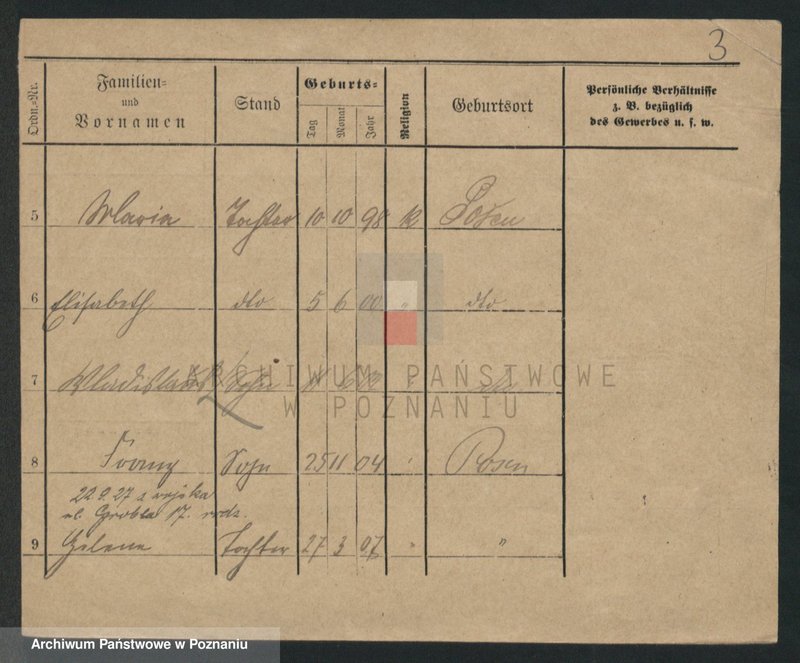 3
Ordn.-Nr.
Familien-
und
Vornamen
Stand
Geburts-
Tag
Monat
Jahr
Religion
Geburtsort
Persönliche Verhältnisse
z. B. bezüglich
des Gewerbes u. s. w.
5 Maria Tochter 10 10 98 k Posen
6 Elisabeth dto 5 6 00 " dto
7 Wladislaus Sohn
8 Franz Sohn 25 11 04 Posen
22.9.27 z wojska
ul. Grobla 17. rodz.
9 Helene Tochter 27 3 07 " "
ARCHIWUM PAŃSTWOWE
W POZNANIU
Archiwum Państwowe w Poznaniu